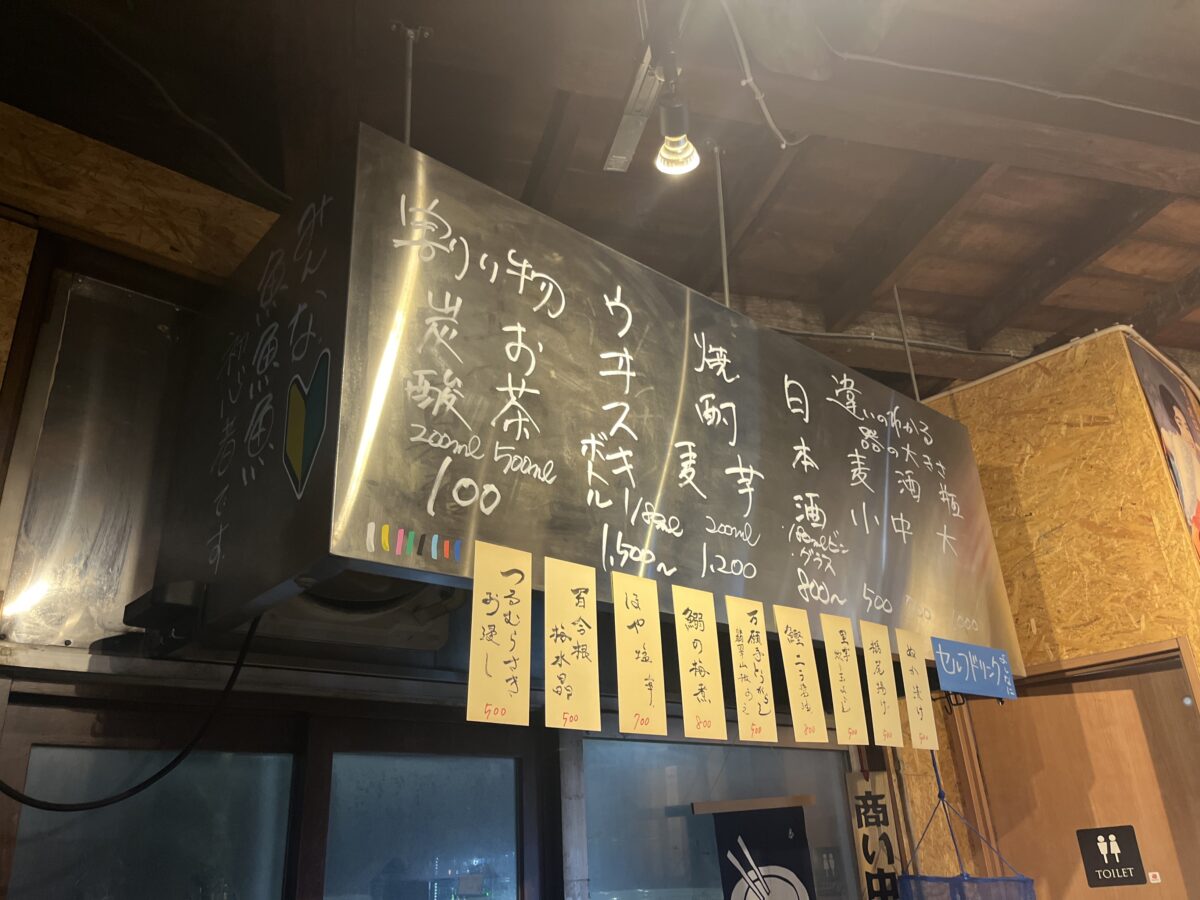 みんな
魚魚魚い
初心者です
割り物
炭酸
200ml
お茶
500ml
100
ウヰスキー
ボトル
180ml
1,500〜
焼酎
麦 芋
200ml
1,200
日本酒
180mlビン
・グラス
800〜
違いのわかる
器の大きさ
麦酒
小 500
中
瓶
大 1000
つるむらさき
お浸し
500
百合根
梅水晶
500
ほや塩辛
700
鰯の梅煮
800
万願寺とうがらし
500
800
500
栃尾揚げ
500
ぬか漬け
500
セルフドリンク
商い中
TOILET